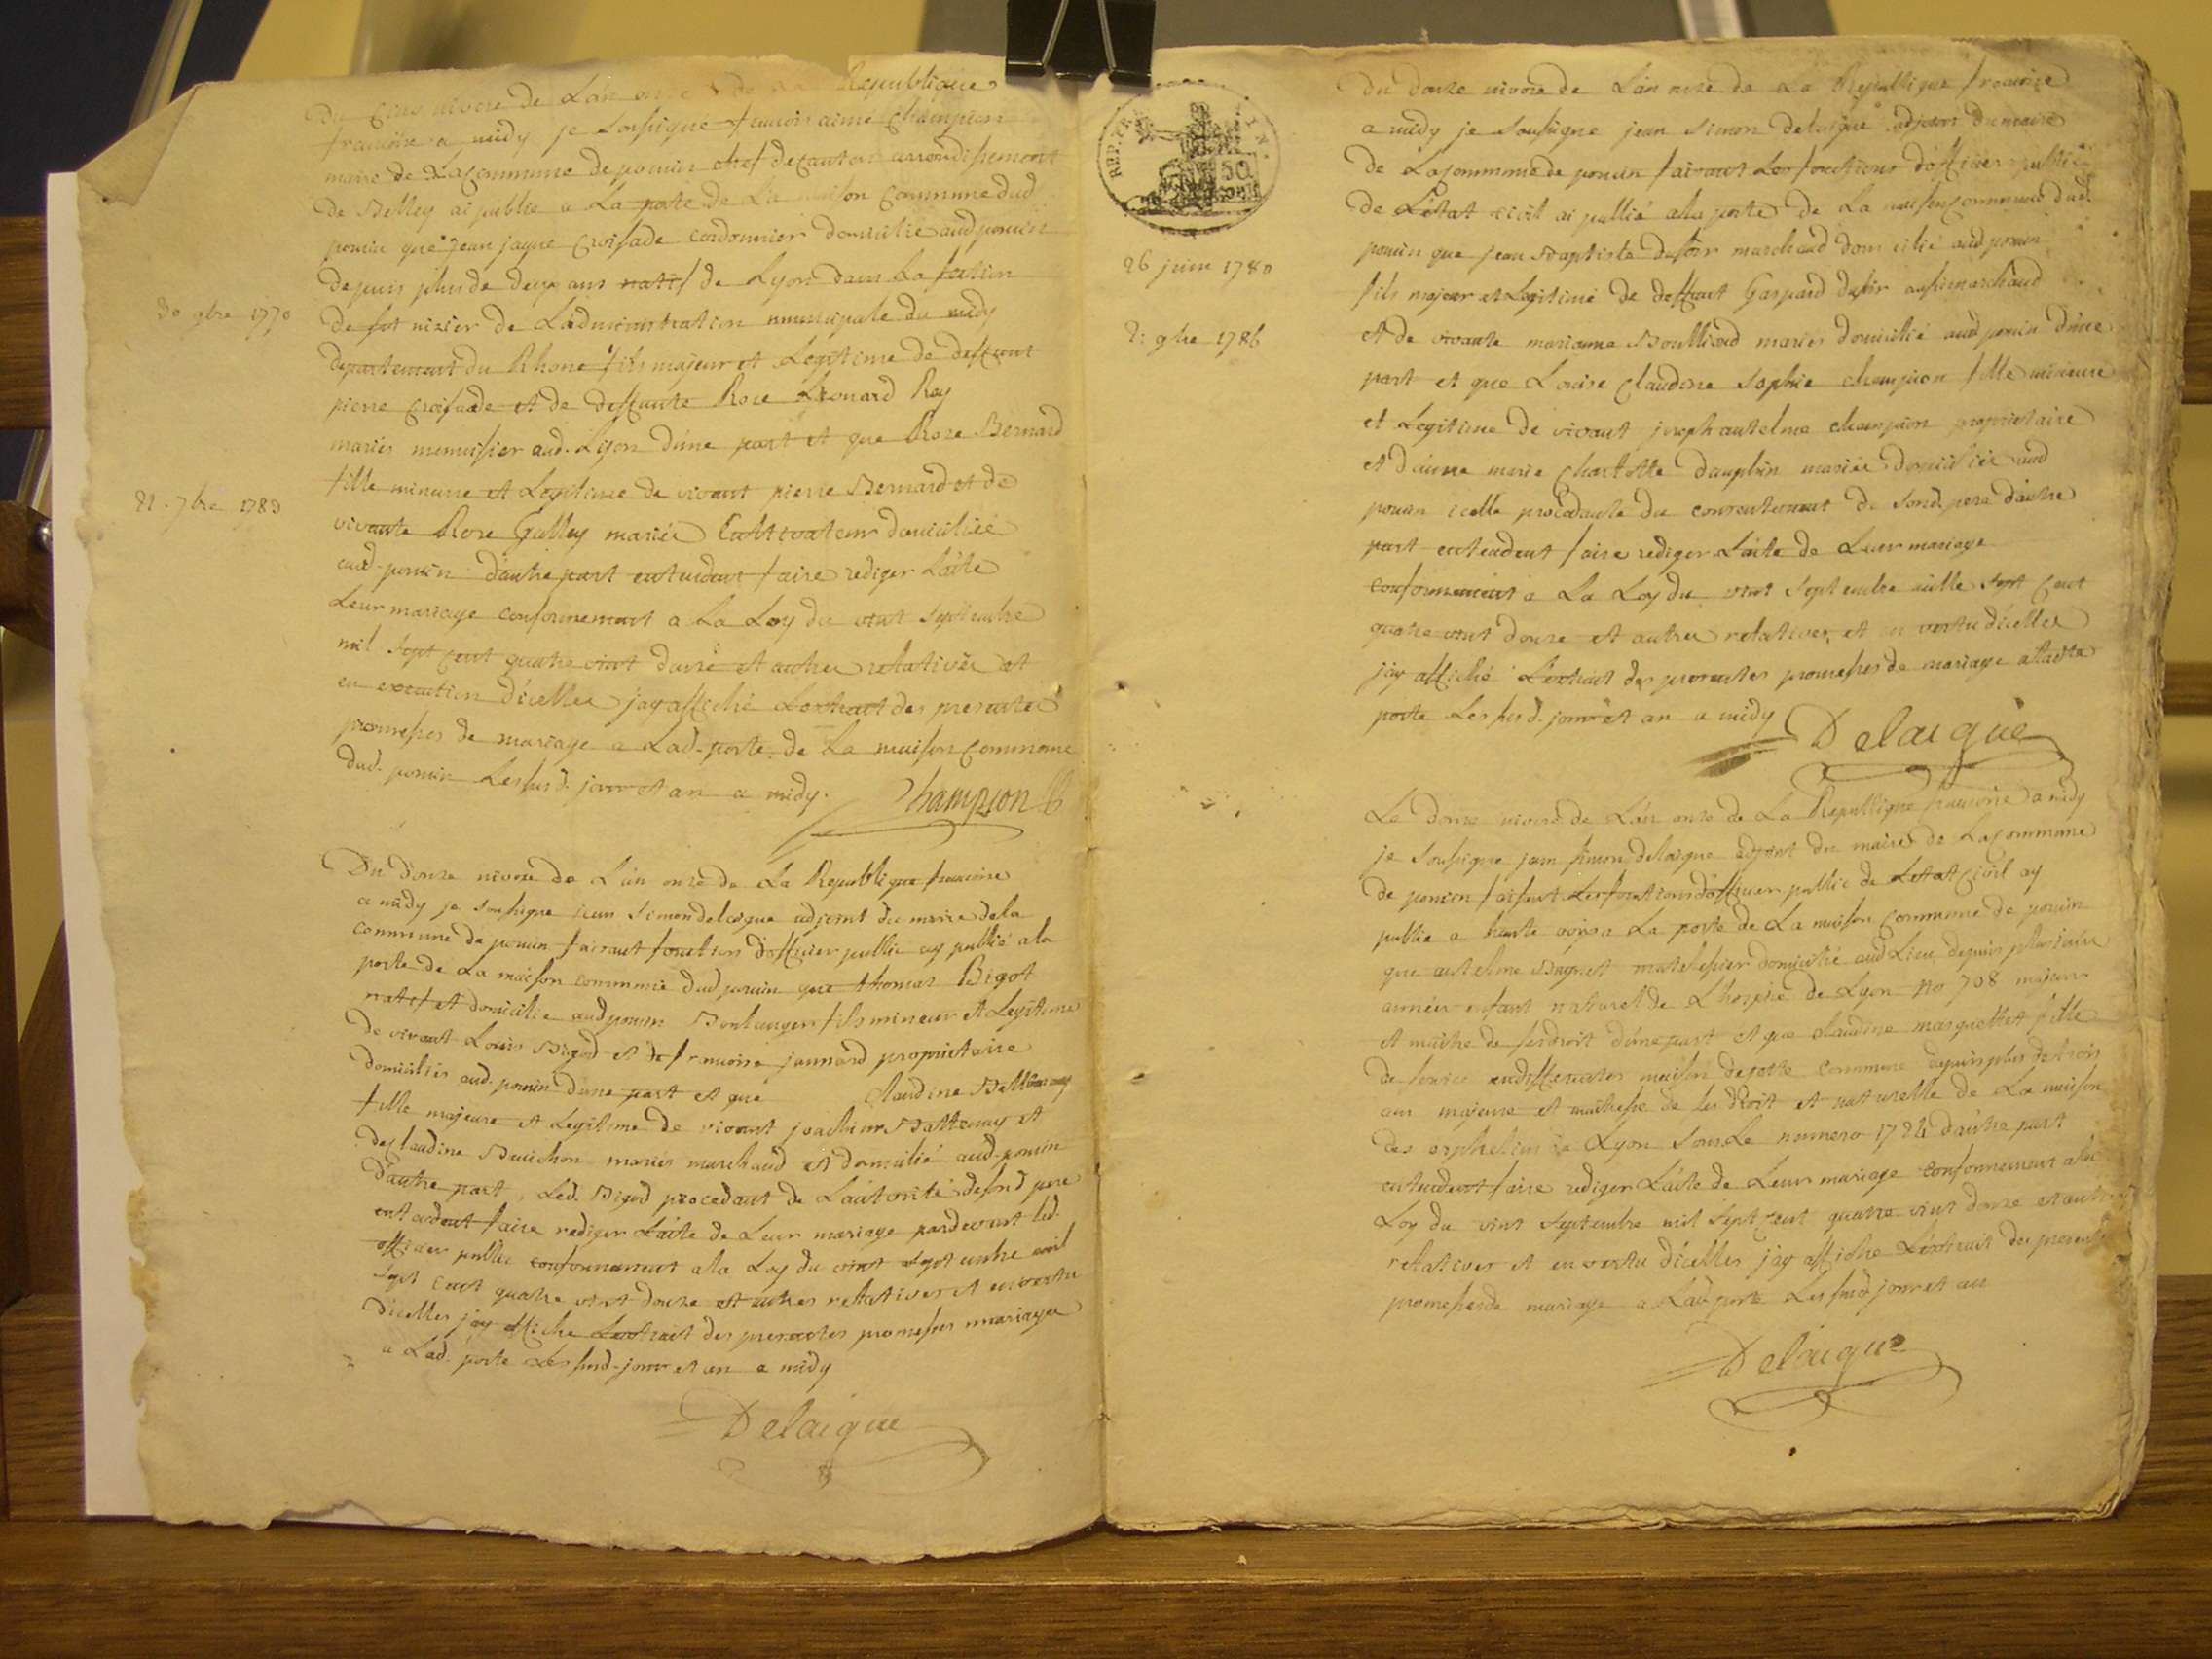 Du cinq nivose de L'an onze de la Republique
francoise a midy je soussigné francois aimé champion
maire de La commune de poncin chef de canton arrondissement
de Belley ai publié a La porte de La maison commune dud
poncin que jean jaque Croisade cordonnier domicilié aud poncin
depuis plus de deux ans natif de Lyon dans La section
de st nizier de L'administration municipale du midy
30 9bre 1770
departement du Rhone fils majeur et Legitime de deffunt
pierre Croisade et de deffunte Rose Leonard Rey
mariés menuisier aud. Lyon d'une part et que Rose Bernard
fille mineure et Legitime de vivant pierre Bernard et de
21 - 7bre 1783
vivante Rose Galley mariés Cultivateur domiciliée
aud-poncin d'autre part entendent faire rediger L'acte
Leur mariage conformement a La Loy du vint septembre
mil sept cent quatre vint douze et autres relatives et
en execution d'icelles j'ay affiché L'extrait des presentes
promesses de mariage a Lad-porte de La maison commune
dud-poncin Les susd. jour et an a midy. Champion
Du douze nivose de L'an onze de La Republique francoise
a midy je soussigne jean simon delaigue adjoint du maire de la
commune de poncin faisant fonction d'officier public ay publié a la
porte de La maison commune dud poncin que thomas Bigot
natif et domicilie aud poncin Boulanger fils mineur et Legitime
de vivant Louis Bigod et de francoise jannard proprietaire
domiciliés aud. poncin d'une part et que claudine Battenay
fille majeure et Legitime de vivant joachim Battenay et
de claudine Bauchon mariés marchand et domicilié aud-poncin
d'autre part, Led. Bigod procedant de L'autorité de sond pere
entendent faire rediger L'acte de Leur mariage pardevant led.
officier public conformement a la Loy du vint septembre mil
sept cent quatre vint douze et autres relatives et en vertu
d'icelles j'ay affiche L'extrait des presentes promesses mariage
a Lad. porte Les susd-jour et an a midy
Delaigue
REP. FRA FIN.
50
CENT
Du douze nivose de L'an onze de La Republique francoise
a midy je soussigne jean simon delaigue adjoint du maire
de La commune de poncin faisant Les fonctions d'officier public
de L'état civil ai publié a la porte de La maison commune dud.
26 juin 1780
poncin que jean Baptiste dufour marchand domicilié aud poncin
fils majeur et Legitime de deffunt Gaspard aussi marchand
21 9bre 1786
et de vivante marianne Boulliard mariés domicilié aud poncin d'une
part et que Louise claudine sophie champion fille mineure
et Legitime de vivant joseph antelme champion proprietaire
et d' marie charlotte dauphin mariés domiciliée aud
poncin icelle procedante du consentement de sond. pere d'autre
part entendent faire rediger L'acte de Leur mariage
conformement a La Loy du vint septembre mille sept cent
quatre vint douze et autres relatives, et en vertu d'icelles
j'ay affiché L'extrait des presentes promesses de mariage a ladte
porte Les susd. jour et an a midy Delaigue
Le douze nivose de L'an onze de La Republique francoise a midy
je soussigne jean simon delaigue adjoint du maire de La commune
de poncin faisant Les fonctions d'officier public de L'etat civil ay
publie a haute voix a La porte de La maison commune de poncin
que antelme matelassier domicilié aud Lieu depuis plusieurs
années enfant naturel de L'hospice de Lyon No 708 majeur
et maitre de ses droit d'une part et que claudine marguettet fille
de service en differentes maison de cette commune depuis plus de trois
ans majeure et maitresse de ses droit et naturelle de La maison
des orphelins de Lyon sous Le numero 1724 d'autre part
entendent faire rediger L'acte de Leur mariage conformement a la
Loy du vint septembre mil sept cent quatre vint douze et autres
relatives et en vertu d'icelles j'ay affiche L'extrait des presentes
promesses de mariage a Lad. porte Les susd jour et an
Delaigue